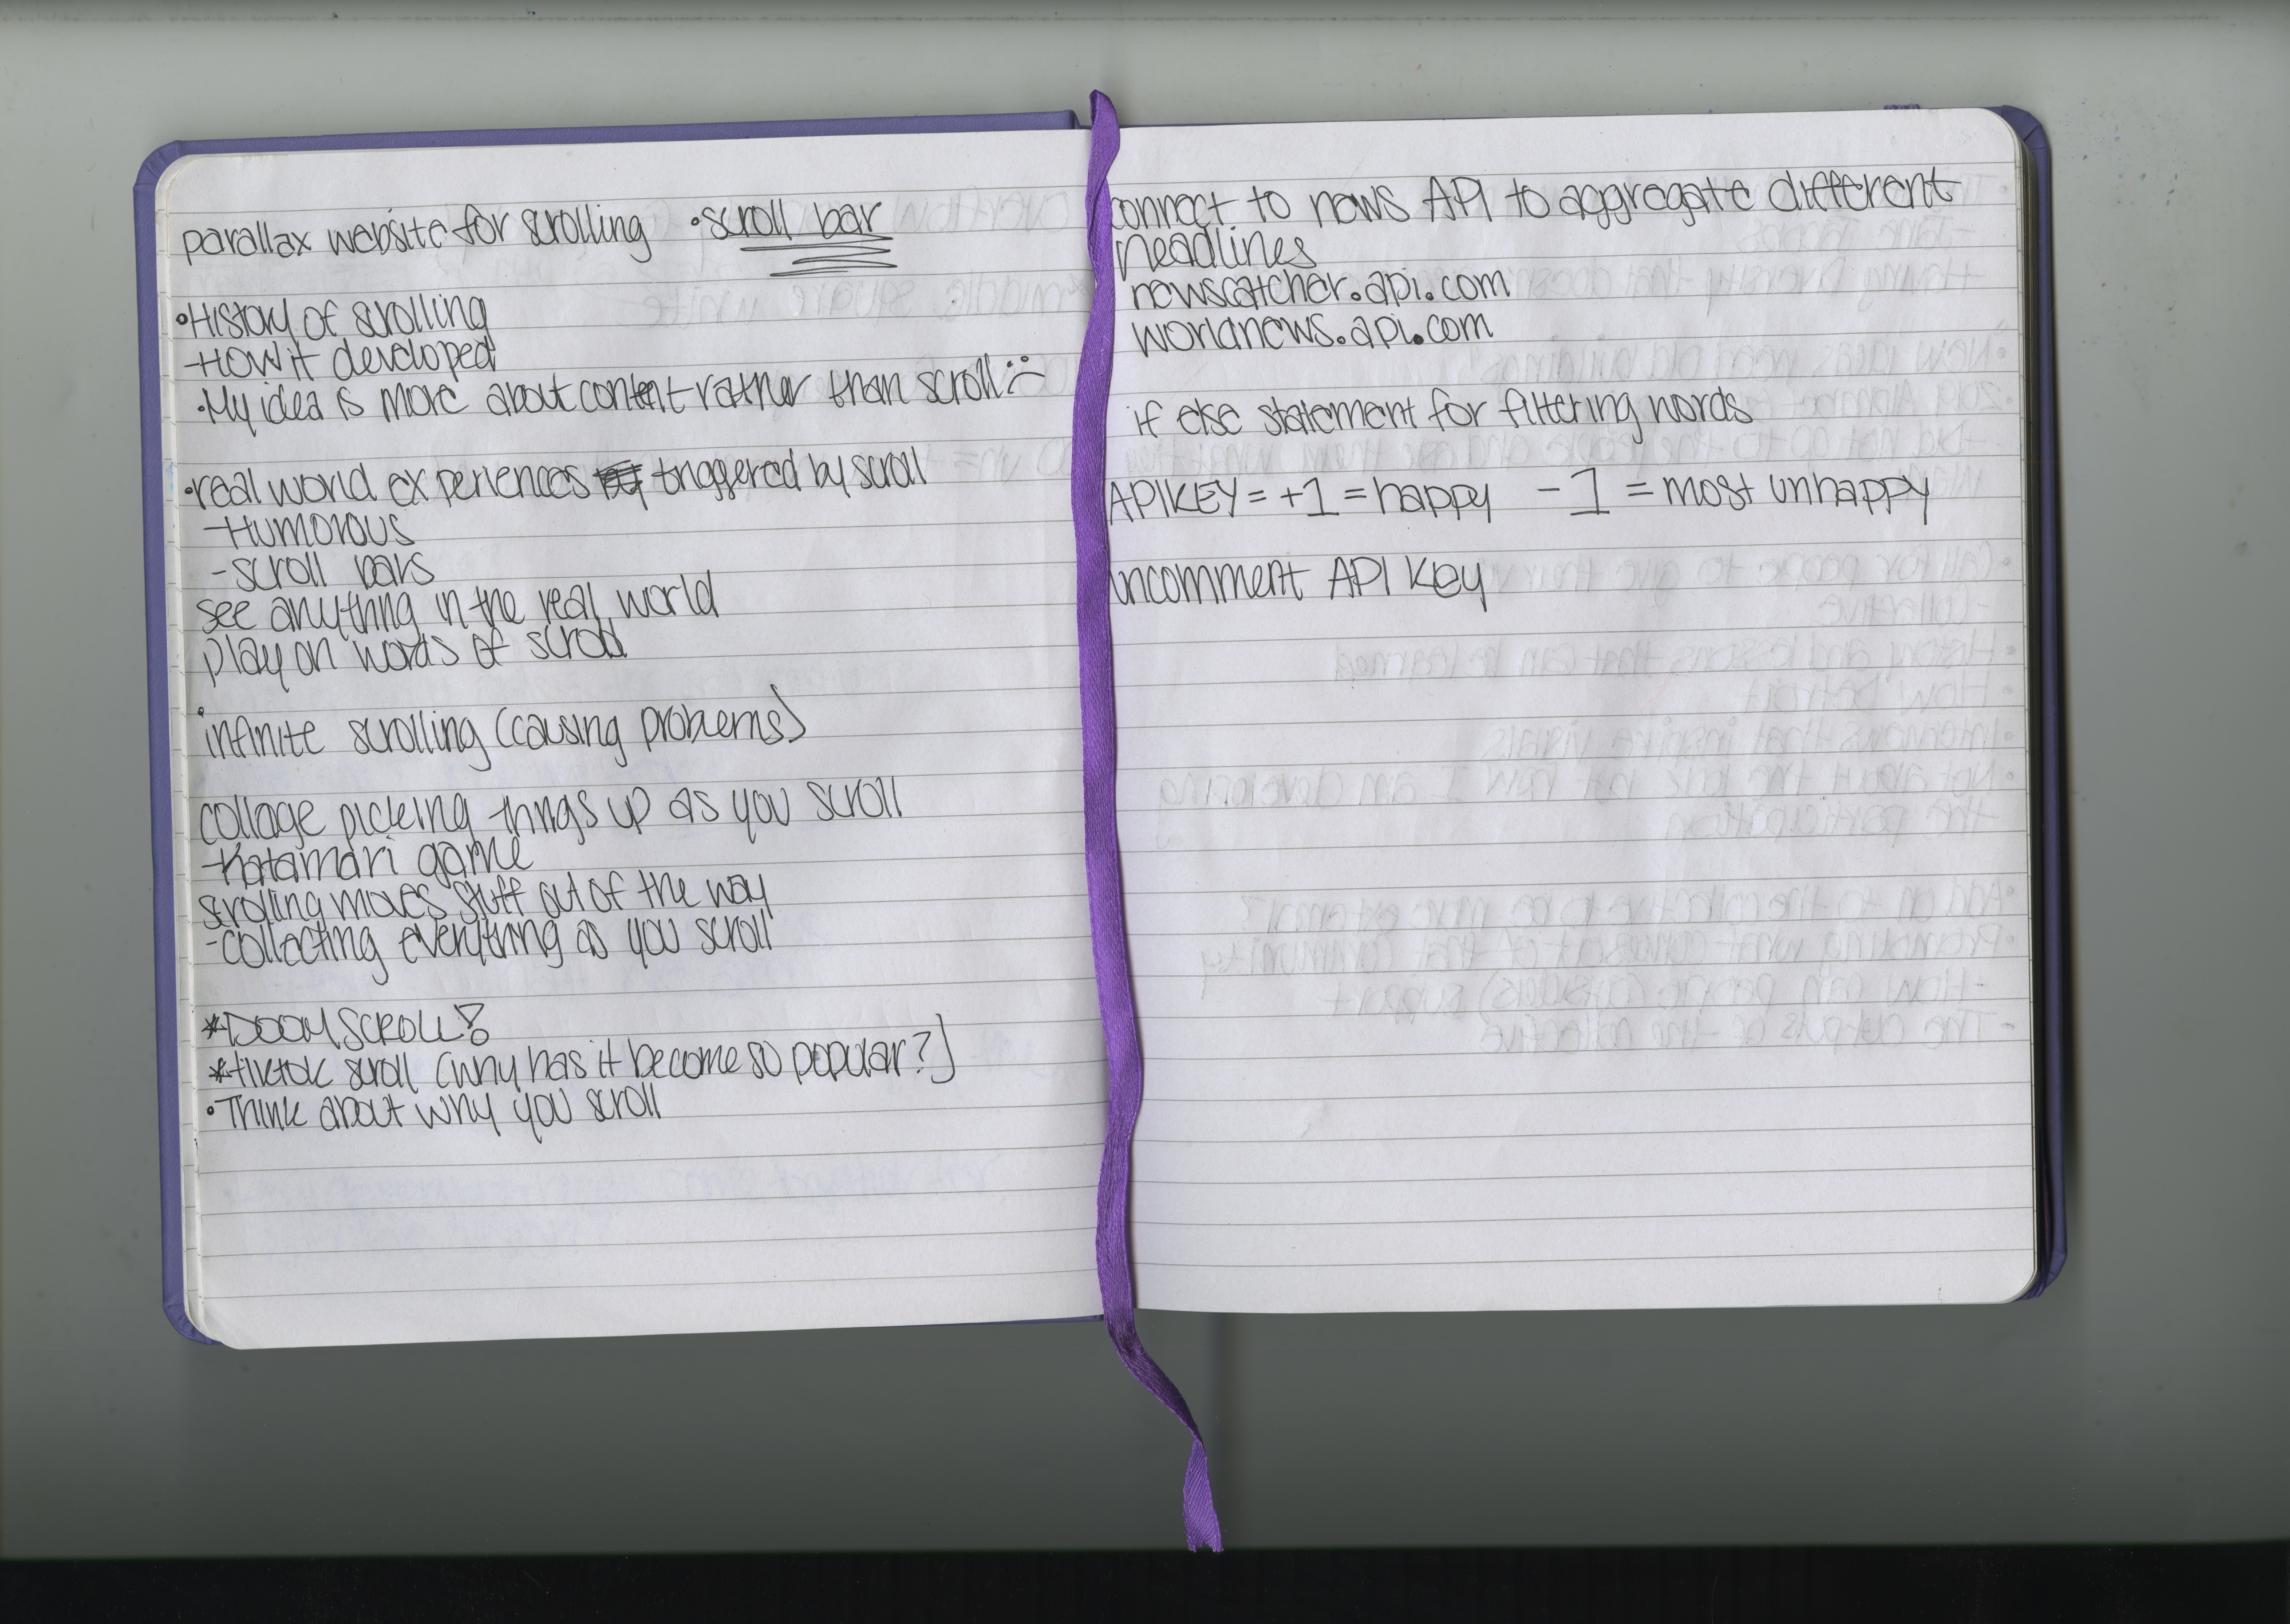 parallax website for scrolling • scroll bar
• History of scrolling
- How it developed
• My idea is more about content rather than scroll :(
• real world experiences triggered by scroll
- Humorous
- scroll bars
see anything in the real world
play on words of scroll
• infinite scrolling (causing problems)
collage picking things up as you scroll
- Katamari game
scrolling moves stuff out of the way
- collecting everything as you scroll
* DOOM SCROLL!
* tiktok scroll (why has it become so popular?)
• Think about why you scroll
connect to news API to aggregate different
headlines
newscatcher.api.com
worldnews.api.com
if else statement for filtering words
API KEY = +1 = happy - 1 = most unhappy
uncomment API Key